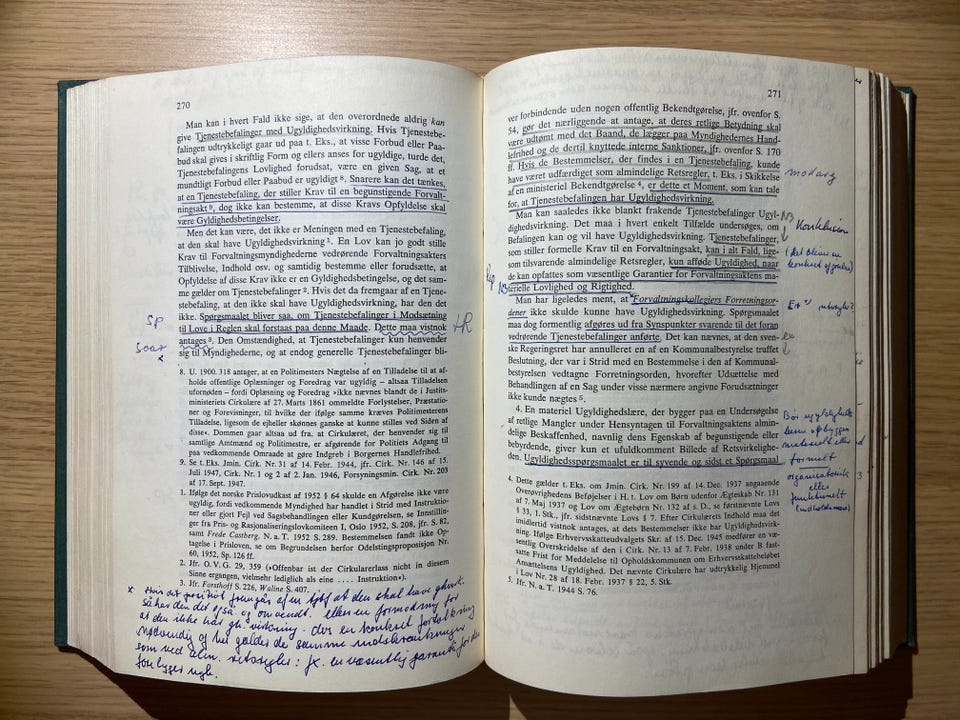 270
Man kan i hvert Fald ikke sige, at den overordnede aldrig kan
give Tjenestebefalinger med Ugyldighedsvirkning. Hvis Tjenestebe-
falingen udtrykkeligt gaar ud paa t. Eks., at visse Forbud eller Paa-
bud skal gives i skriftlig Form og ellers anses for ugyldige, turde det,
at Tjenestebefalingens Lovlighed forudsat, være en given Sag, at et
mundtligt Forbud eller Paabud er ugyldigt 8. Snarere kan det tænkes,
at en Tjenestebefaling, der stiller Krav til en begunstigende Forvalt-
ningsakt 9, dog ikke kan bestemme, at disse Kravs Opfyldelse skal
være Gyldighedsbetingelser.
Men det kan være, det ikke er Meningen med en Tjenestebefaling,
at den skal have Ugyldighedsvirkning 1. En Lov kan jo godt stille
Krav til Forvaltningsmyndighederne vedrørende Forvaltningsakters
Tilblivelse, Indhold osv. og samtidig bestemme eller forudsætte, at
Opfyldelse af disse Krav ikke er en Gyldighedsbetingelse, og det sam-
me gælder om Tjenestebefalinger 2. Hvis det da fremgaar af en Tjene-
stebefaling, at den ikke skal have Ugyldighedsvirkning, har den det
ikke. Spørgsmaalet bliver saa, om Tjenestebefalinger i Modsætning
til Love i Reglen skal forstaas paa denne Maade. Dette maa vistnok
antages 3. Den Omstændighed, at Tjenestebefalinger kun henvender
sig til Myndighederne, og at endog generelle Tjenestebefalinger bli-
SP
Svar
x
HR
8. U. 1900. 318 antager, at en Politimesters Nægtelse af en Tilladelse til at af-
holde offentlige Oplæsninger og Foredrag var ugyldig – altsaa Tilladelsen
ufornøden – fordi Oplæsning og Foredrag »ikke nævnes blandt de i Justits-
ministeriets Cirkulære af 27. Marts 1861 ommeldte Forlystelser, Præstatio-
ner og Forevisninger, til hvilke der ifølge samme kræves Politimesterens
Tilladelse, ligesom de ejheller skønnes ganske at kunne stilles ved Siden af
disse«. Dommen gaar altsaa ud fra, at Cirkulæret, der henvender sig til
samtlige Amtmænd og Politimestre, er afgørende for Politiets Adgang til
paa vedkommende Omraade at gøre Indgreb i Borgernes Handlefrihed.
9. Se t. Eks. Jmin. Cirk. Nr. 31 af 14. Febr. 1944, jfr. Cirk. Nr. 146 af 15.
Juli 1947, Cirk. Nr. 1 og 2 af 2. Jan. 1946, Forsyningsmin. Cirk. Nr. 203
af 17. Sept. 1947.
1. Ifølge det norske Prislovudkast af 1952 § 64 skulde en Afgørelse ikke være
ugyldig, fordi vedkommende Myndighed har handlet i Strid med Instruktio-
ner eller gjort Fejl ved Sagsbehandlingen eller Kundgørelsen, se Innstillin-
ger fra Pris- og Rasjonaliseringslovkomiteen I, Oslo 1952, S. 208, jfr. S. 82,
samt Frede Castberg. N. a. T. 1952 S. 289. Bestemmelsen fandt ikke Op-
tagelse i Prisloven, se om Begrundelsen herfor Odelstingsproposition Nr.
60, 1952, Sp. 126 ff.
2. Jfr. O. V. G. 29, 359 (»Offenbar ist der Cirkularerlass nicht in diesem
Sinne ergangen, vielmehr lediglich als eine .... Instruktion«).
3. Jfr. Forsthoff S. 226, Waline S. 407.
x Hvis det positivt fremgår af en tjbf at den skal have gh.virk.
så har den det også og omvendt. ellers en formodning for
at den ikke har gh. virkning. dvs en konkret fortolkning
nødvendig og her gælder de samme indskrænkninger
som ved alm. retsregler: fx. en væsentlig garanti for den
271
ver forbindende uden nogen offentlig Bekendtgørelse, jfr. ovenfor S.
54, gør det nærliggende at antage, at deres retlige Betydning skal
være udtømt med det Baand, de lægger paa Myndighedernes Hand-
lefrihed og de dertil knyttede interne Sanktioner, jfr. ovenfor S. 170
ff. Hvis de Bestemmelser, der findes i en Tjenestebefaling, kunde
have været udfærdiget som almindelige Retsregler, t. Eks. i Skikkelse
af en ministeriel Bekendtgørelse 4, er dette et Moment, som kan tale
for, at Tjenestebefalingen har Ugyldighedsvirkning.
Man kan saaledes ikke blankt frakende Tjenestebefalinger Ugyl-
dighedsvirkning. Det maa i hvert enkelt Tilfælde undersøges, om
Befalingen kan og vil have Ugyldighedsvirkning. Tjenestebefalinger,
som stiller formelle Krav til en Forvaltningsakt, kan i alt Fald, lige-
som tilsvarende almindelige Retsregler, kun afføde Ugyldighed, naar
de kan opfattes som væsentlige Garantier for Forvaltningsaktens ma-
terielle Lovlighed og Rigtighed.
Man har ligeledes ment, at Forvaltningskollegiers Forretningsor-
dener ikke skulde kunne have Ugyldighedsvirkning. Spørgsmaalet
maa dog formentlig afgøres ud fra Synspunkter svarende til det foran
vedrørende Tjenestebefalinger anførte. Det kan nævnes, at den sven-
ske Regeringsret har annulleret en af en Kommunalbestyrelse truffet
Beslutning, der var i Strid med en Bestemmelse i den af Kommunal-
bestyrelsen vedtagne Forretningsorden, hvorefter Udsættelse med
Behandlingen af en Sag under visse nærmere angivne Forudsætninger
ikke kunde nægtes 5.
4. En materiel Ugyldighedslære, der bygger paa en Undersøgelse
af retlige Mangler under Hensyntagen til Forvaltningsaktens almin-
delige Beskaffenhed, navnlig dens Egenskab af begunstigende eller
bebyrdende, giver kun et ufuldkomment Billede af Retsvirkelighe-
den. Ugyldighedsspørgsmaalet er til syvende og sidst et Spørgsmaal
modarg
NB
Konklusion
NB
ex
formelt
eller
4. Dette gælder t. Eks. om Jmin. Cirk. Nr. 199 af 14. Dec. 1937 angaaende
Overøvrighedens Beføjelser i H. t. Lov om Børn udenfor Ægteskab Nr. 131
af 7. Maj 1937 og Lov om Ægtebørn Nr. 132 af s. D., se førstnævnte Lovs
§ 33, 1. Stk., jfr. sidstnævnte Lovs § 7. Efter Cirkulærets Indhold maa det
imidlertid vistnok antages, at dets Bestemmelser ikke har Ugyldighedsvirk-
ning. Ifølge Erhvervsskatteudvalgets Skr. af 15. Dec. 1945 medfører en væ-
sentlig Overskridelse af den i Cirk. Nr. 13 af 7. Febr. 1938 under B fast-
satte Frist for Meddelelse til Opholdskommunen om Erhvervsskattebeløbet
Ansættelsens Ugyldighed. Det nævnte Cirkulære har udtrykkelig Hjemmel
i Lov Nr. 28 af 18. Febr. 1937 § 22, 5. Stk.
5. Jfr. N. a. T. 1944 S. 76.